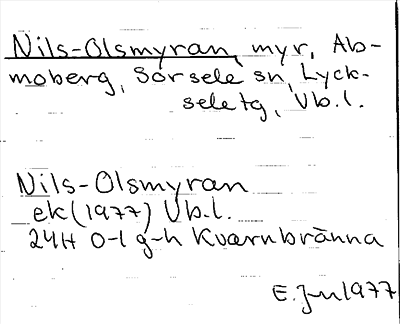 Nils-Olsmyran, myr, Ab-
moberg, Sorsele sn, Lyck-
sele tg, Vb.l.
Nils-Olsmyran
ek (1977) Vb.l.
24H 0-1 g-h Kvarnbränna
E. Jn 1977